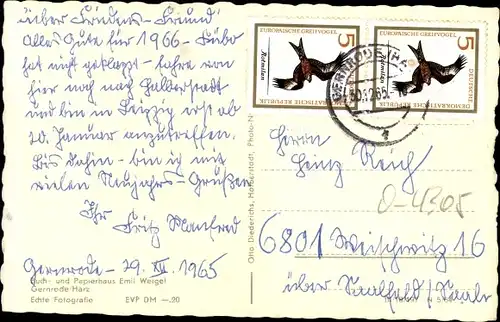 Alles Gute für 1966 – Lübo
hat nicht geklappt – fahre von
hier noch nach Halberstadt
und bin in Leipzig erst ab
20. Januar anzutreffen.
Bis dahin – bin ich mit
vielen Neujahrs-Grüßen
Ihr Fritz Manfred
Gernrode – 29. XII. 1965
Buch- und Papierhaus Emil Weigel
Gernrode/Harz
Echte Fotografie EVP DM –.20
Otto Diederichs, Halberstadt, Photo-N
5 EUROPÄISCHE GREIFVÖGEL
Rotmilan
DEUTSCHE DEMOKRATISCHE REPUBLIK
5 EUROPÄISCHE GREIFVÖGEL
Rotmilan
DEUTSCHE DEMOKRATISCHE REPUBLIK
GERNRODE (HARZ)
30.12.65
Herrn
Heinz
O-4305
6801 Weischwitz 16
über Saalfeld/Saale